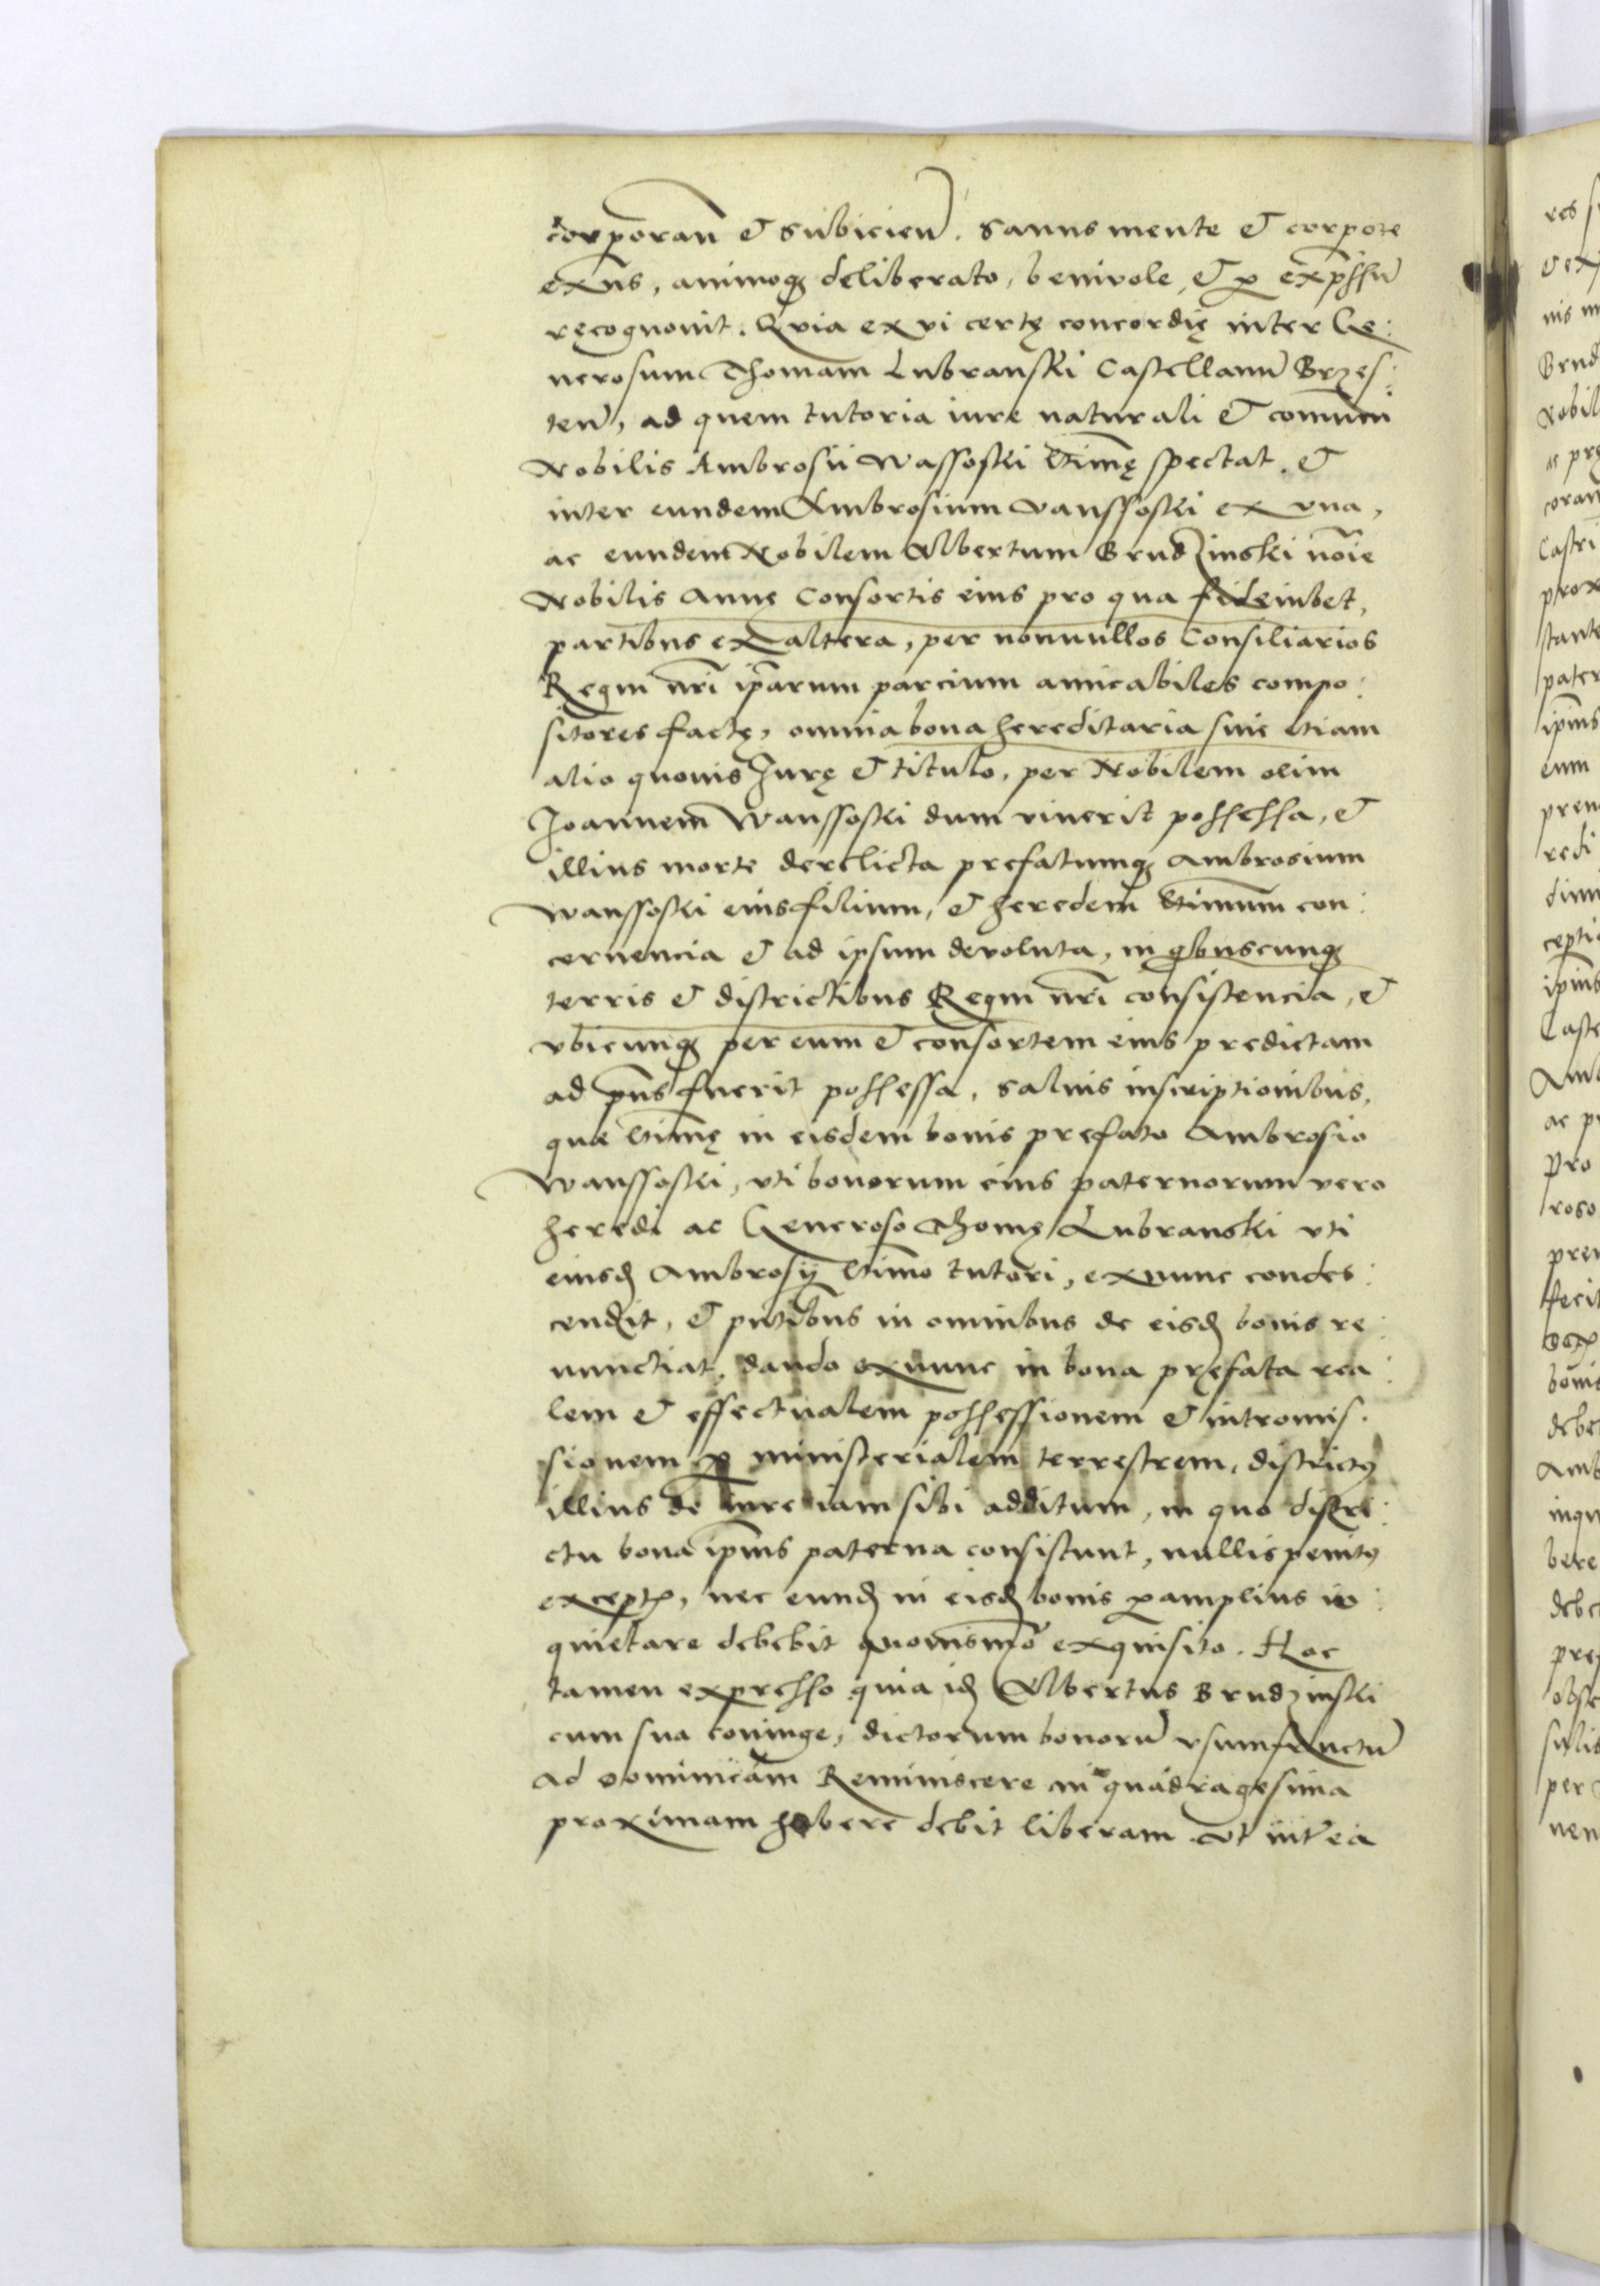 corporan̄ & subicien̄. Sanus mente & corpore
exn̄s, animoq꜎ deliberato, benivole, & ꝑ exp̄ssū
recognovit. Qvia ex vi certę concordię inter Ge:
nerosum Thomam Lubransƙi Castellanū Brzes:
ten̄, ad quem tutoria iure naturali & comuni
Nobilis Ambrosii Wassosƙi l̄timę spectat. &
inter eundem Ambrosium Vanssosƙi ex una,
ac eundem Nobilem Albertum Brudzinski noīe
Nobilis Annę Consortis eius pro qua fideiubet,
partibus ex altera, per nonnullos Consiliarios
Regni nr̄i ip̄arum parcium amicabiles compo:
sitores factę, omnia bona hereditaria sive etiam
alio quovis Jurę & titulo, per Nobilem olim
Joannem Wanssosƙi dum vixerit possessa, &
illius morte derelicta prefatumq꜎ Ambrosium
Wanssosƙi eius filium, & heredem l̄timum con:
cernencia & ad ipsum devoluta, in qbuscunq꜎
terris & districtibus Regni nr̄i consistencia, &
ubicunq꜎ per eum & consortem eius predictam
ad pn̄s fuerit possessa, salvis inscriptionibus,
quæ l̄timę in eisdem bonis prefato Ambrosio
Wanssosƙi, uti bonorum eius paternorum vero
heredi ac Generoso Thomę Lubranski uti
eiusd꜎ Ambrosÿ l̄timo tutori, exnunc condes:
cendit, & pn̄tibus in omnibus de eisd꜎ bonis re:
nunctiat, dando exnunc in bona pręfata rea:
lem & effectualem possessionem & intromis:
sionem ꝑ ministerialem terrestrem, districtꝰ
illius de iure iam sibi additum, in quo distri:
ctu bona ip̄ius paterna consistunt, nullis penitꝰ
exceptꝭ, nec eund꜎ in eisd꜎ bonis ꝑamplius in:
quietare debebit quovismo᷈ exquisito. Hoc
tamen expresso quia id꜎ Albertus Brudzinsƙi
cum sua coniuge, dictorum bonorū usumfructū
ad Dominicam Reminiscere in quadragesima
proximam habere debit liberam. Ut int̄ea